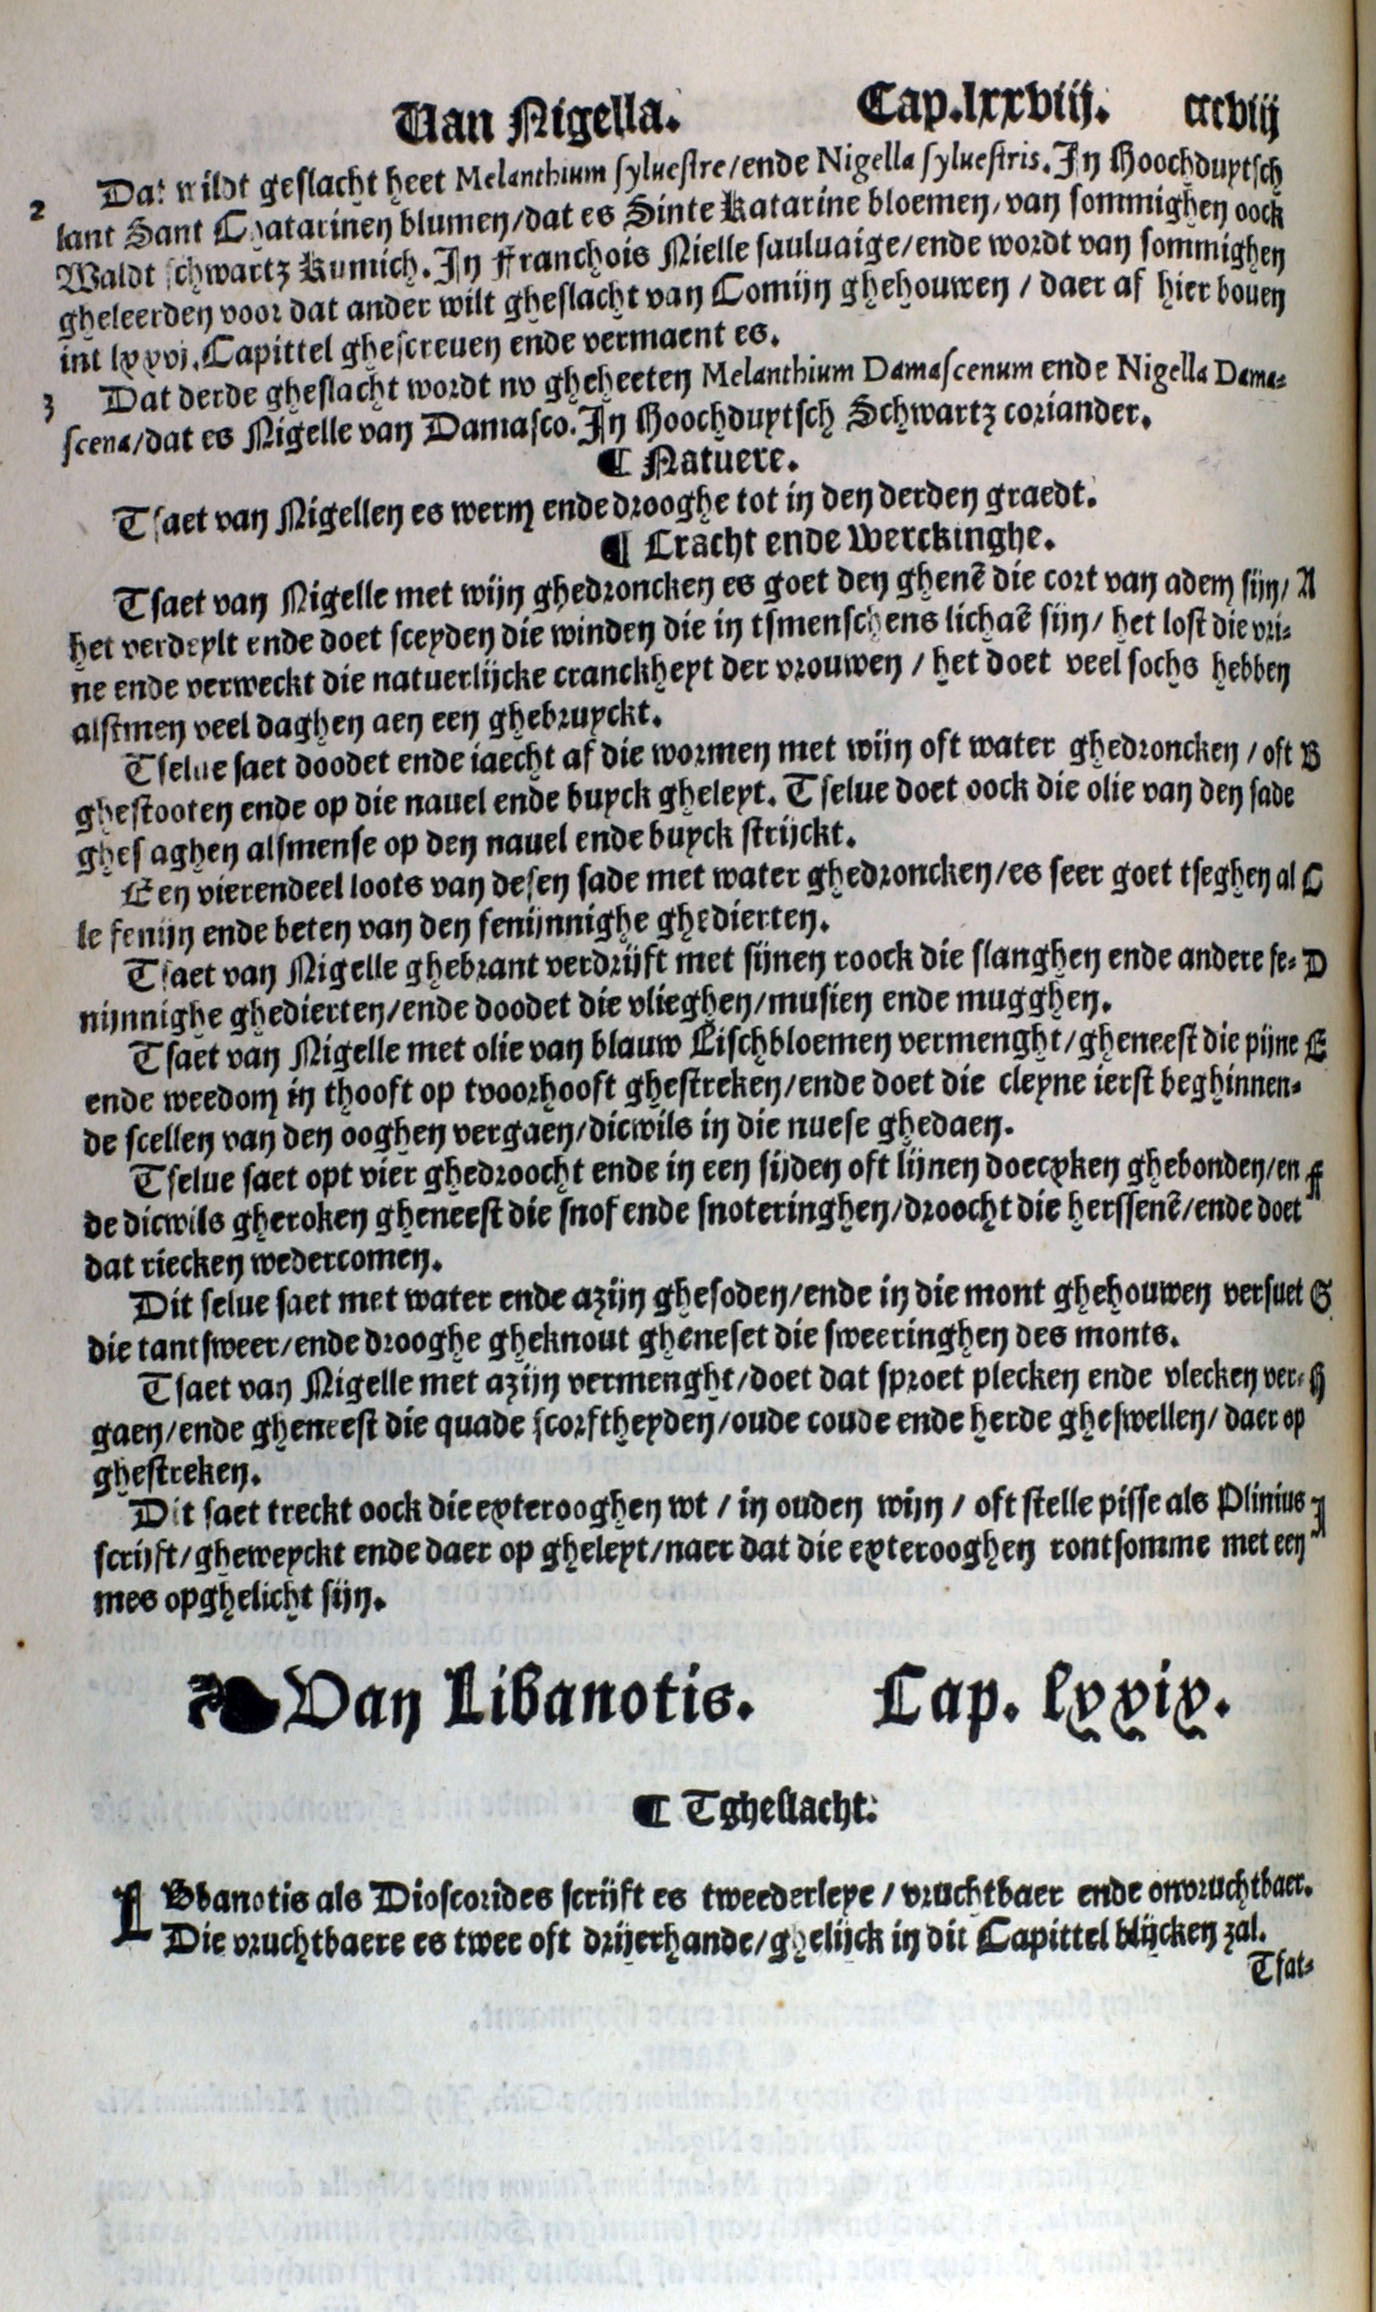 Van Nigella. Cap.lxxviij. cccviij
2 Dat wildt geslacht heet Melanthium sylvestre/ende Nigella sylvestris. In Hoochduytsch
lant Sant Catarinen blumen/dat es Sinte Katarine bloemen/van sommighen oock
Waldt schwartz Kumich. In Franchois Nielle sauluaige/ende wordt van sommighen
gheleerden voor dat ander wilt gheslacht van Comijn ghehouwen / daer af hier bouen
int lxxvj. Capittel ghescreuen ende vermaent es.
3 Dat derde gheslacht wordt nv gheheeten Melanthium Damascenum ende Nigella Dama-
scena/dat es Nigelle van Damasco. In Hoochduytsch Schwartz coriander.
¶ Natuere.
Tsaet van Nigellen es werm ende drooghe tot in den derden graedt.
¶ Cracht ende Werckinghe.
Tsaet van Nigelle met wijn ghedroncken es goet den ghenẽ die cort van adem sijn/ A
het verdeylt ende doet sceyden die winden die in tsmenschens lichaẽ sijn/ het lost die vri-
ne ende verweckt die natuerlijcke cranckheyt der vrouwen / het doet veel sochs hebben
alstmen veel daghen aen een ghebruyckt.
Tselue saet doodet ende iaecht af die wormen met wijn oft water ghedroncken / oft B
ghestooten ende op die nauel ende buyck gheleyt. Tselue doet oock die olie van den sade
ghesaghen alsmense op den nauel ende buyck strijckt.
Een vierendeel loots van desen sade met water ghedroncken/es seer goet tseghen al C
le fenijn ende beten van den fenijnnighe ghedierten.
Tsaet van Nigelle ghebrant verdrijft met sijnen roock die slanghen ende andere fe- D
nijnnighe ghedierten/ende doodet die vlieghen/musien ende mugghen.
Tsaet van Nigelle met olie van blauw Lischbloemen vermenght/gheneest die pijne E
ende weedom in thooft op tvoorhooft ghestreken/ende doet die cleyne ierst beghinnen-
de scellen van den ooghen vergaen/dicwils in die nuese ghedaen.
Tselue saet opt vier ghedroocht ende in een sijden oft lijnen doecxken ghebonden/en F
de dicwils gheroken gheneest die snof ende snoteringhen/droocht die herssenẽ/ende doet
dat riecken wedercomen.
Dit selue saet met water ende azijn ghesoden/ende in die mont ghehouwen versuet G
die tantsweer/ende drooghe gheknout gheneset die sweeringhen des monts.
Tsaet van Nigelle met azijn vermenght/doet dat sproet plecken ende vlecken ver- H
gaen/ende gheneest die quade scorftheyden/oude coude ende herde gheswellen/ daer op
ghestreken.
Dit saet treckt oock die exterooghen wt / in ouden wijn / oft stelle pisse als Plinius I
scrijft/gheweyckt ende daer op gheleyt/naer dat die exterooghen rontsomme met een
mes opghelicht sijn.
Van Libanotis. Cap. lxxix.
¶ Tgheslacht.
LIbanotis als Dioscorides scrijft es tweederleye / vruchtbaer ende onvruchtbaer.
Die vruchtbaere es twee oft drijerhande/ghelijck in dit Capittel blijcken zal.
Tfat-